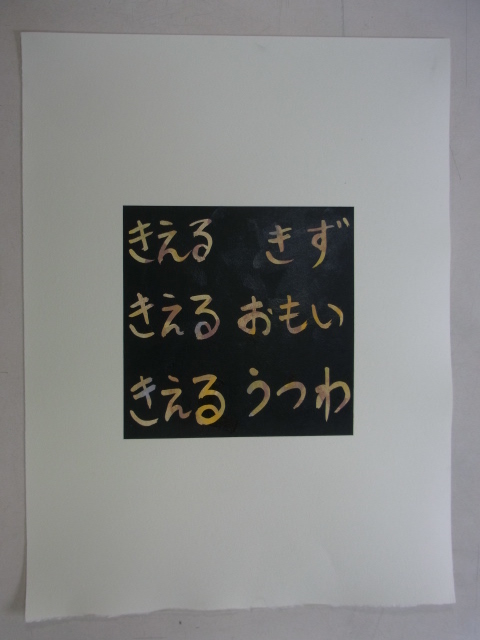 きえる きず
きえる おもい
きえる うつわ